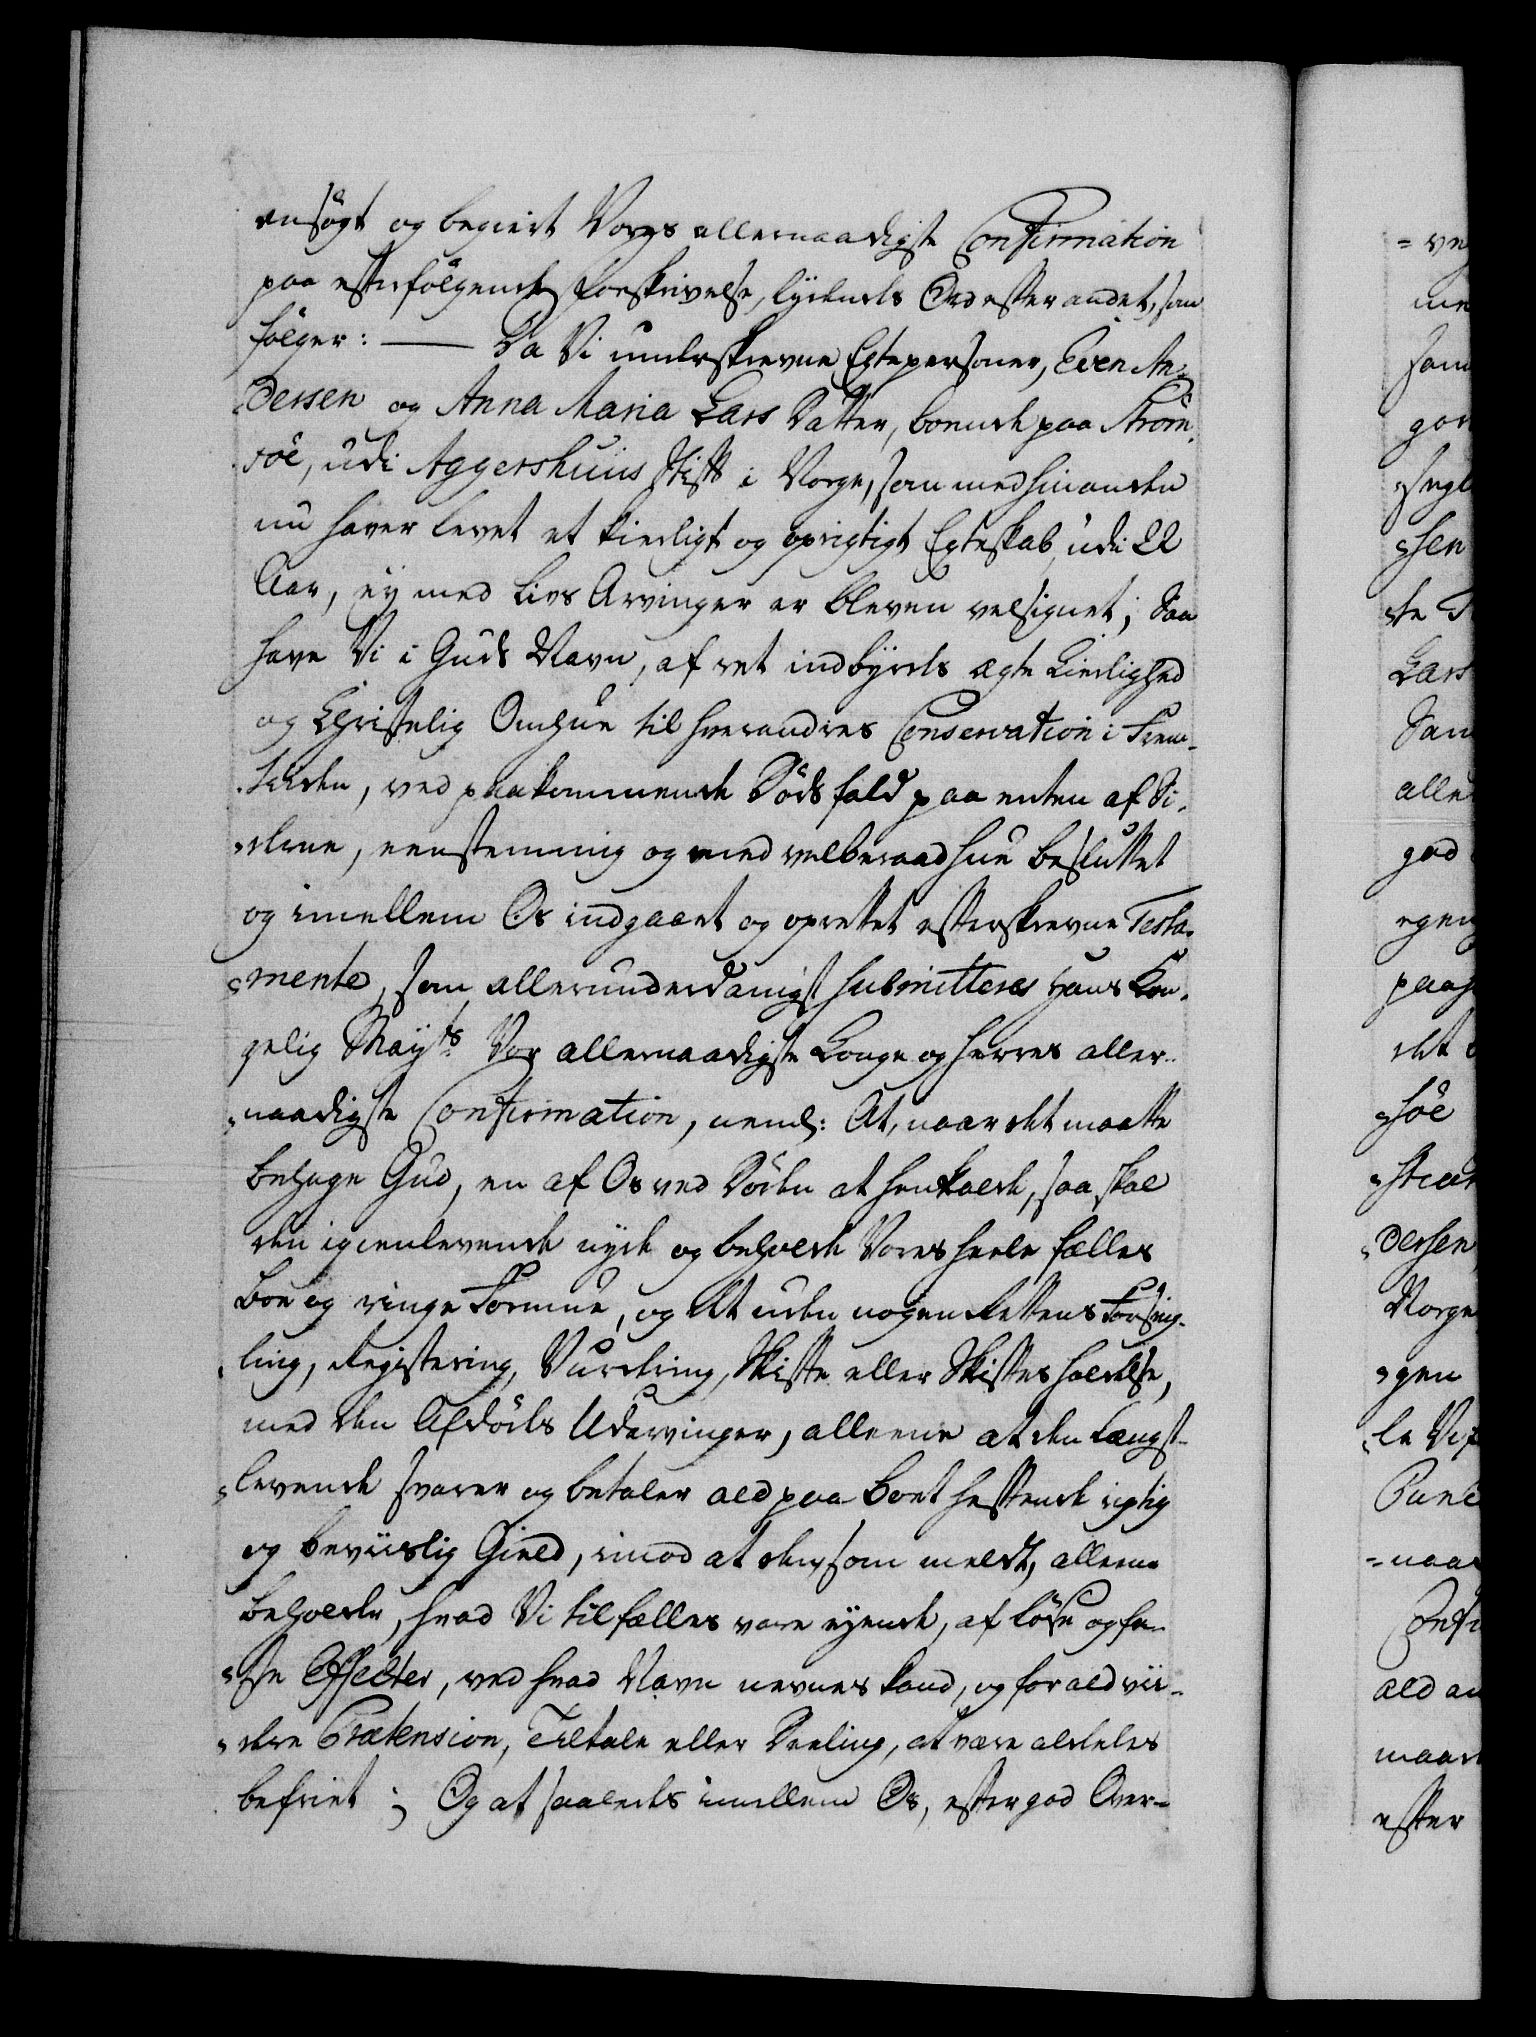 ansøgt og begiert Vores allernaadigste Confirmation
paa efterfølgende Forskrivelse, lydende Ord efter andet, som
følger: — Da Vi underskrevne Egtepersoner, Even An-
dersen og Anna Maria Lars Datter, boende paa Strøms-
søe, udi Aggershuus Stift i Norge, som med hinanden
nu haver levet et kierligt og oprigtigt Egteskab, udi 22
Aar, ey med Livs Arvinger er bleven velsignet; Saa
have Vi i Guds Navn, af ret indbyrdes ægte Kierlighed
og Christelig Omhue til hverandres Conservation i Frem-
tiden, ved paakommende Dødsfald paa enten af Si-
derne, eenstemmig og med velberaad hue besluttet
og imellem Os indgaaet og oprettet efterskrevne Testa-
mente, som allerunderdanigst submitteres Hans Kon-
gelig Mayts Vor allernaadigste Konge og Herres aller-
naadigste Confirmation, neml: At, naar det maatte
behage Gud, en af Os ved Døden at henkalde, saa skal
den igienlevende nyde og beholde Vores heele fælles
Boe og ringe Formue, og det uden nogen Rettens Forseig-
ling, Registering, Vurdering, Skifte eller Skiftes holdelse,
med den Afdødes Udarvinger, alleene at den Længst-
levende svarer og betaler ald paa Boet heftende rigtig
og beviislig Gield, imod at den, som meldt, alleene
beholder, hvad Vi tilfælles vare eyende, af løse og fa-
ste Effecter, ved hvad Navn nevnes kand, og for ald vii-
dere Prætension, Tiltale eller Deeling, at være aldeles
befriet; Og at saaledes imellem Os, efter god Over-
me
som
sen
Lars
alle
god
det
søe
dersen
Norge
gen
naar
ald an
efter